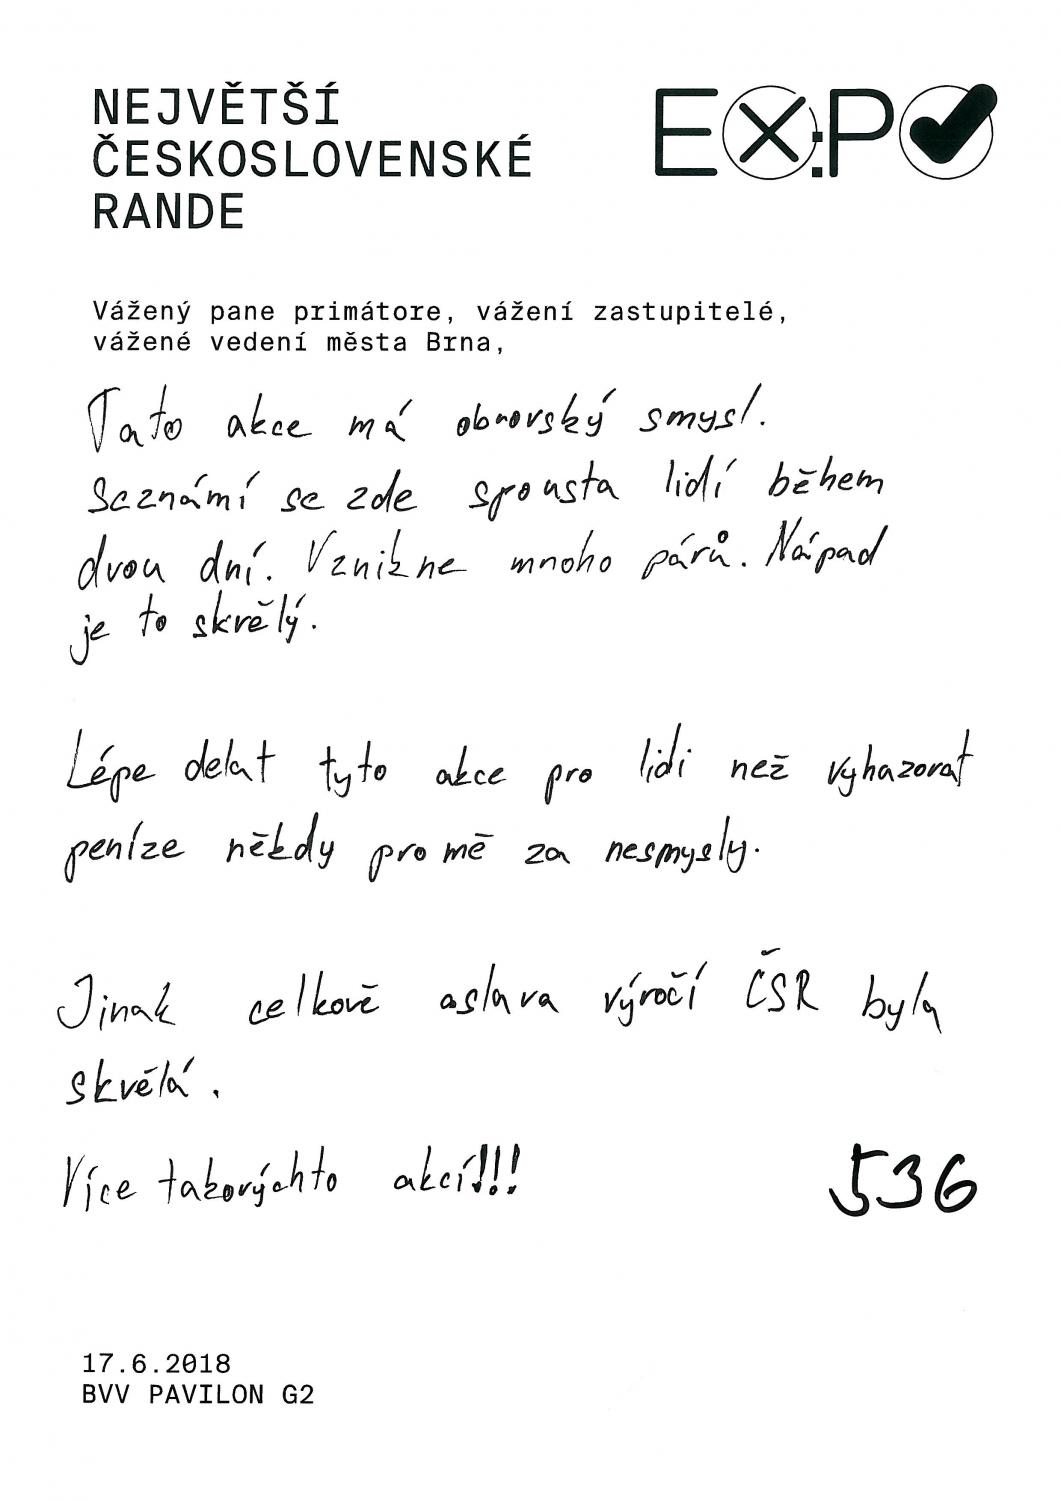 NEJVĚTŠÍ
ČESKOSLOVENSKÉ
RANDE
EX:P
Vážený pane primátore, vážení zastupitelé,
vážené vedení města Brna,
Tato akce má obrovský smysl.
Seznámí se zde spousta lidí během
dvou dní. Vznikne mnoho párů. Nápad
je to skvělý.
Lépe delat tyto akce pro lidi než vyhazovat
peníze někdy pro mě za nesmysly.
Jinak celkově oslava výročí ČSR byla
skvělá.
Více takovýchto akcí!!!
536
17.6.2018
BVV PAVILON G2